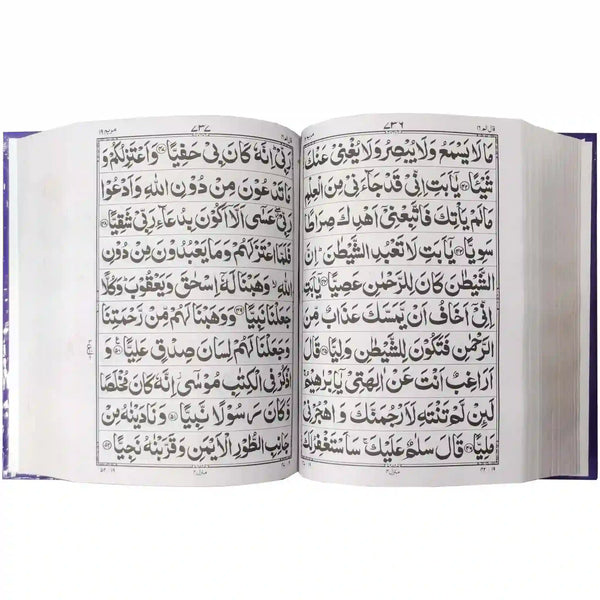 قال الم ١٦ ٧٣٦ مريم ١٩
مَا لَا يَسْمَعُ وَلَا يُبْصِرُ وَلَا يُغْنِيْ عَنْكَ
شَيْئًا ﴿٤٢﴾ يٰۤاَبَتِ اِنِّيْ قَدْ جَآءَنِيْ مِنَ الْعِلْمِ
مَا لَمْ يَاْتِكَ فَاتَّبِعْنِيْۤ اَهْدِكَ صِرَاطًا
سَوِيًّا ﴿٤٣﴾ يٰۤاَبَتِ لَا تَعْبُدِ الشَّيْطٰنَ ؕ اِنَّ
الشَّيْطٰنَ كَانَ لِلرَّحْمٰنِ عَصِيًّا ﴿٤٤﴾ يٰۤاَبَتِ
اِنِّيْۤ اَخَافُ اَنْ يَّمَسَّكَ عَذَابٌ مِّنَ
الرَّحْمٰنِ فَتَكُوْنَ لِلشَّيْطٰنِ وَلِيًّا ﴿٤٥﴾ قَالَ
اَرَاغِبٌ اَنْتَ عَنْ اٰلِهَتِيْ يٰۤاِبْرٰهِيْمُ ۚ
لَئِنْ لَّمْ تَنْتَهِ لَاَرْجُمَنَّكَ وَاهْجُرْنِيْ
مَلِيًّا ﴿٤٦﴾ قَالَ سَلٰمٌ عَلَيْكَ ۚ سَاَسْتَغْفِرُ لَكَ
منزل ٤
٧٣٧ مريم ١٩
رَبِّيْ ؕ اِنَّهٗ كَانَ بِيْ حَفِيًّا ﴿٤٧﴾ وَاَعْتَزِلُكُمْ وَ
مَا تَدْعُوْنَ مِنْ دُوْنِ اللّٰهِ وَاَدْعُوْا
رَبِّيْ ۖ عَسٰۤى اَلَّاۤ اَكُوْنَ بِدُعَآءِ رَبِّيْ شَقِيًّا ﴿٤٨﴾
فَلَمَّا اعْتَزَلَهُمْ وَمَا يَعْبُدُوْنَ مِنْ دُوْنِ
اللّٰهِ ۙ وَهَبْنَا لَهٗۤ اِسْحٰقَ وَيَعْقُوْبَ ؕ وَكُلًّا
جَعَلْنَا نَبِيًّا ﴿٤٩﴾ وَوَهَبْنَا لَهُمْ مِّنْ رَّحْمَتِنَا
وَجَعَلْنَا لَهُمْ لِسَانَ صِدْقٍ عَلِيًّا ﴿٥٠﴾ وَ
اذْكُرْ فِي الْكِتٰبِ مُوْسٰۤى ۫ اِنَّهٗ كَانَ مُخْلَصًا
وَّكَانَ رَسُوْلًا نَّبِيًّا ﴿٥١﴾ وَنَادَيْنٰهُ مِنْ
جَانِبِ الطُّوْرِ الْاَيْمَنِ وَقَرَّبْنٰهُ نَجِيًّا ﴿٥٢﴾
منزل ٤